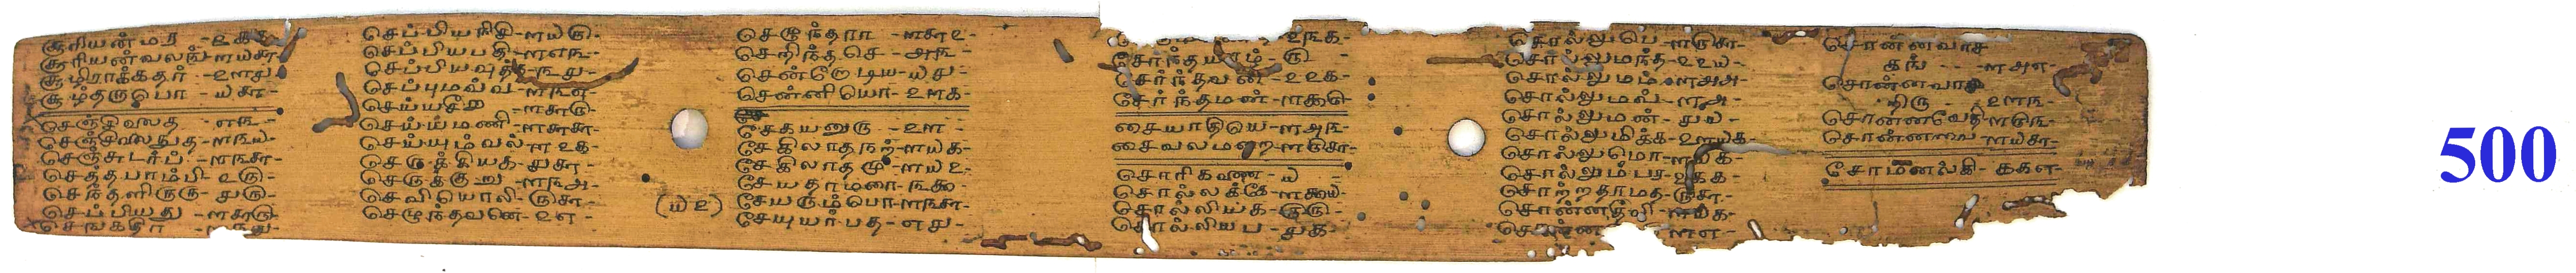 சூரியன்மர - உகக
சூரியன்வலங் - ளயசு -
சூழிராக்கதர் - உளது
சூழ்தருபொ - யசு -
செஞ்சிலைத - எரு -
செஞ்சிலைத்த - ளநய -
செஞ்சுடர்ப் - ளநசு -
செத்தபாம்பி - உரு -
செந்தளிருரு - துரு -
செப்பியது - ளசுரு -
செப்பியநிதி - ளயரு -
செப்பியபதி - ளஎரு -
செப்பியவுத்த - நது -
செப்புமவ்வ - ளநஎ -
செய்யசீற - ளசுரு -
செய்ய்மணி - ளசுசு -
செய்யும்வல் - ளஉக -
செருக்கியத - துசு -
செருக்குறு - ளநஅ -
செவியொலி - ருசு -
செழுந்தவனை - உஎ -
(யஉ)
செழுந்தாரா - ளசுஉ -
செறிந்தசெ - அரு -
சென்றோடிய - யது -
சென்னியொ - உளக -
சேகயனுரு - உள -
சேகிலாதநற் - ளயக -
சேகிலாதமூ - ளயஉ -
சேயதாமரை - நகூ -
சேயரும்பொ - ளநசு -
சேயுயர்பத - எது -
உநக -
சேர்ந்தயாழ் - ரு -
சேர்ந்தவன் - உஉக -
சேர்ந்தமண் - ளகூ -
சையாதியெ - ளஅரு -
சைவலமன்ற - ளருசு -
சொரிகணை - ய -
சொல்லக்கே - ளகூய -
சொல்லிய்த - ருரு -
சொல்லியப - துக -
சொல்லுபெ - ளருசு -
சொல்லுமந்த - உஉய -
சொல்லுமம் - ளஅஅ -
சொல்லுமவ் - ளஅ -
சொல்லுமன் - துய -
சொல்லுமிக்க - உளயக -
சொல்லுமொ - ளயக -
சொல்லும்பர - உகக -
சொற்றதாமத - ருசு -
சொன்னத்வி - ளயக -
சொன்னவாச
கங் - ளஅஎ -
சொன்னவாச
திரு - உளரு -
சொன்னவேதி - ளருரு -
சொன்னவை - ளயசு -
சோமனல்கி - ககஎ -
500